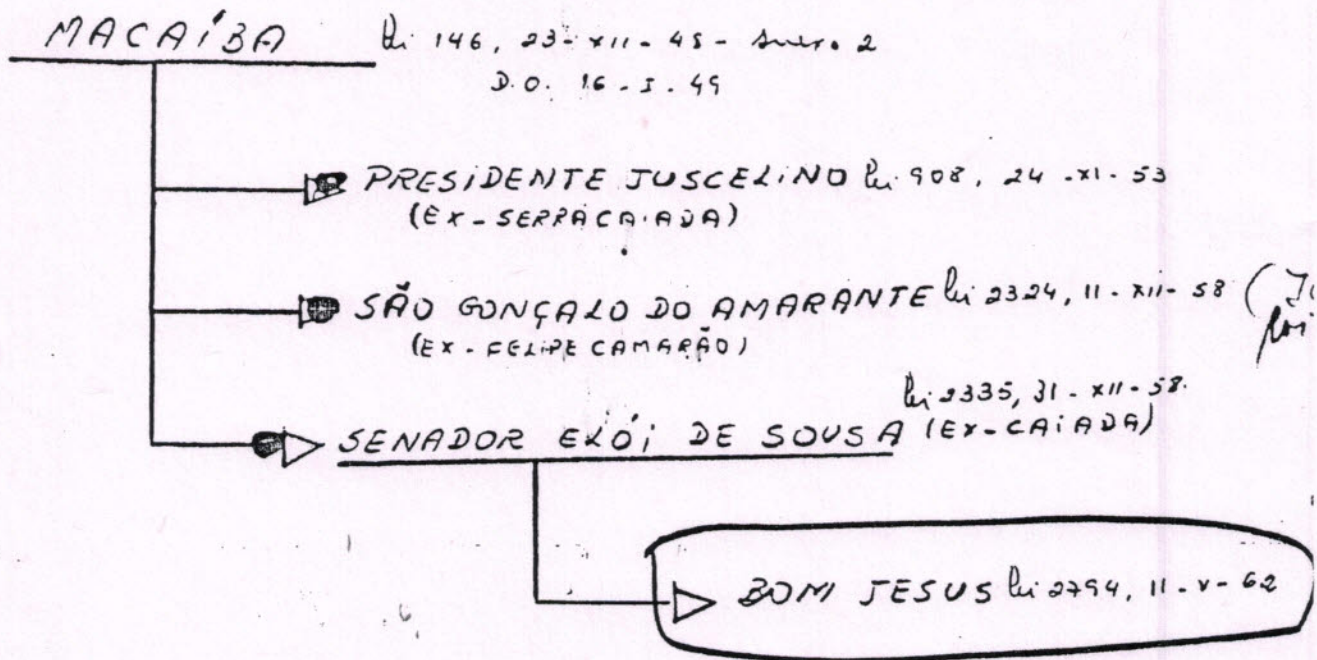 MACAÍBA Lei 146, 23-XII-48 - Anexo 2
D.O. 16-I-49
PRESIDENTE JUSCELINO Lei 908, 24-XI-53
(EX-SERRACAIADA)
SÃO GONÇALO DO AMARANTE Lei 2324, 11-XII-58 (
(EX-FELIPE CAMARÃO)
Lei 2335, 31-XII-58.
SENADOR ELÓI DE SOUSA (EX-CAIADA)
BOM JESUS Lei 2794, 11-V-62